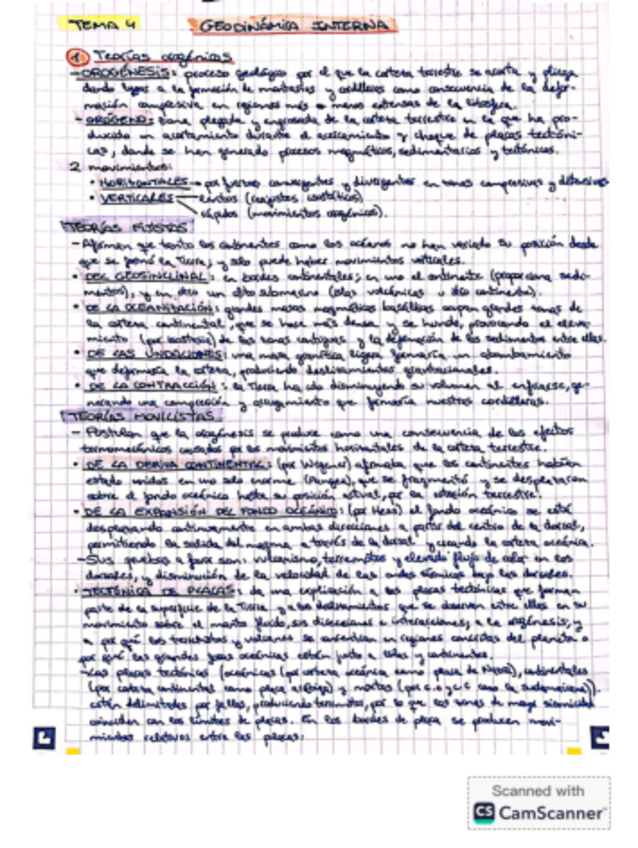 TEMA 4 GEODINÁMICA INTERNA
1 Teorías orogénicas
- OROGÉNESIS: proceso geológico por el que la corteza terrestre se acorta y pliega
dando lugar a la formación de montañas y cordilleras como consecuencia de la defor-
mación compresiva en regiones más o menos extensas de la litosfera.
- ORÓGENO: zona plegada y engrosada de la corteza terrestre en la que ha pro-
ducido un acortamiento durante el acercamiento y choque de placas tectóni-
cas, donde se han generado procesos magmáticos, sedimentarios y tectónicos.
2 movimientos:
• HORIZONTALES → por fuerzas convergentes y divergentes en zonas compresivas y distensivas
• VERTICALES lentos (reajustes isostáticos)
rápidos (movimientos orogénicos).
TEORÍAS FIJISTAS
- Afirman que tanto los continentes como los océanos no han variado su posición desde
que se formó la Tierra, y solo puede haber movimientos verticales.
• DEL GEOSINCLINAL: en bordes continentales; en uno el continente (proporciona sedi-
mentos), y en otro un alto submarino (islas volcánicas u otro continente).
• DE LA OCEANIZACIÓN: grandes masas magmáticas basálticas ocupan grandes zonas de
la corteza continental, que se hace más densa y se hunde, provocando el eleva-
miento (por isostasia) de las zonas contiguas y la deformación de los sedimentos entre ellas.
• DE LAS UNDACIONES: una masa granítica ligera formaría un abombamiento
que deformaría la corteza, produciendo deslizamientos gravitacionales.
• DE LA CONTRACCIÓN: la Tierra ha ido disminuyendo su volumen al enfriarse, ge-
nerando una compresión y arrugamiento que formaría nuestras cordilleras.
TEORÍAS MOVILISTAS
- Postulan que la orogénesis se produce como una consecuencia de los efectos
termomecánicos causados por los movimientos horizontales de la corteza terrestre.
• DE LA DERIVA CONTINENTAL: (por Wegener) afirmaba que los continentes habían
estado unidos en uno solo enorme (Pangea), que se fragmentó y se desplazaron
sobre el fondo oceánico hasta su posición actual, por la rotación terrestre.
• DE LA EXPANSIÓN DEL FONDO OCEÁNICO: (por Hess) el fondo oceánico se está
desplazando continuamente en ambas direcciones a partir del centro de la dorsal,
permitiendo la salida del magma a través de la dorsal y creando la corteza oceánica.
- Sus pruebas a favor son: vulcanismo, terremotos y elevado flujo de calor en las
dorsales, y disminución de la velocidad de las ondas sísmicas bajo las dorsales.
• TECTÓNICA DE PLACAS: da una explicación a las placas tectónicas que forman
parte de la superficie de la Tierra y a los deslizamientos que se observan entre ellas en su
movimiento sobre el manto fluido, sus direcciones e interacciones, a la orogénesis, y
a por qué los terremotos y volcanes se concentran en regiones concretas del planeta o
por qué las grandes fosas oceánicas están junto a islas y continentes.
- Las placas tectónicas (oceánicas (por corteza oceánica como placa de Nazca), continentales
(por corteza continental como placa arábiga) y mixtas (por c.o y c.c como la sudamericana))
están delimitadas por fallas, produciendo terremotos, por lo que las zonas de mayor sismicidad
coinciden con los límites de placas. En los bordes de placa se producen movi-
mientos relativos entre las placas:
Scanned with
CS CamScanner